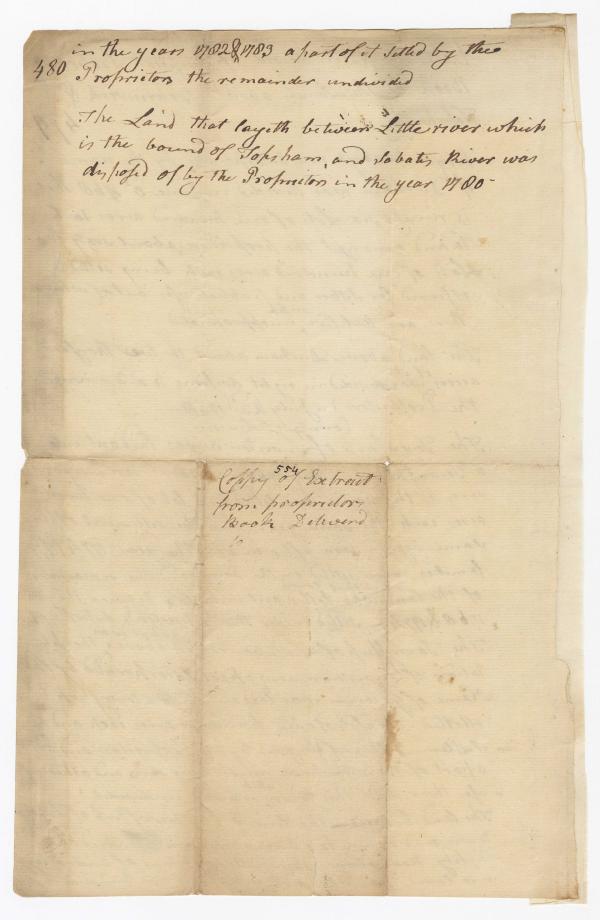 in the years 1782 & 1783 a part of it Setled by the
480
Proprietors the remainder undivided
The Land that layeth between Little river which
is the bound of Topsham, and Sabates River was
disposed of by the Proprietors in the year 1780-
554
Coppy of Extract
from proprietors
Book Deliverd